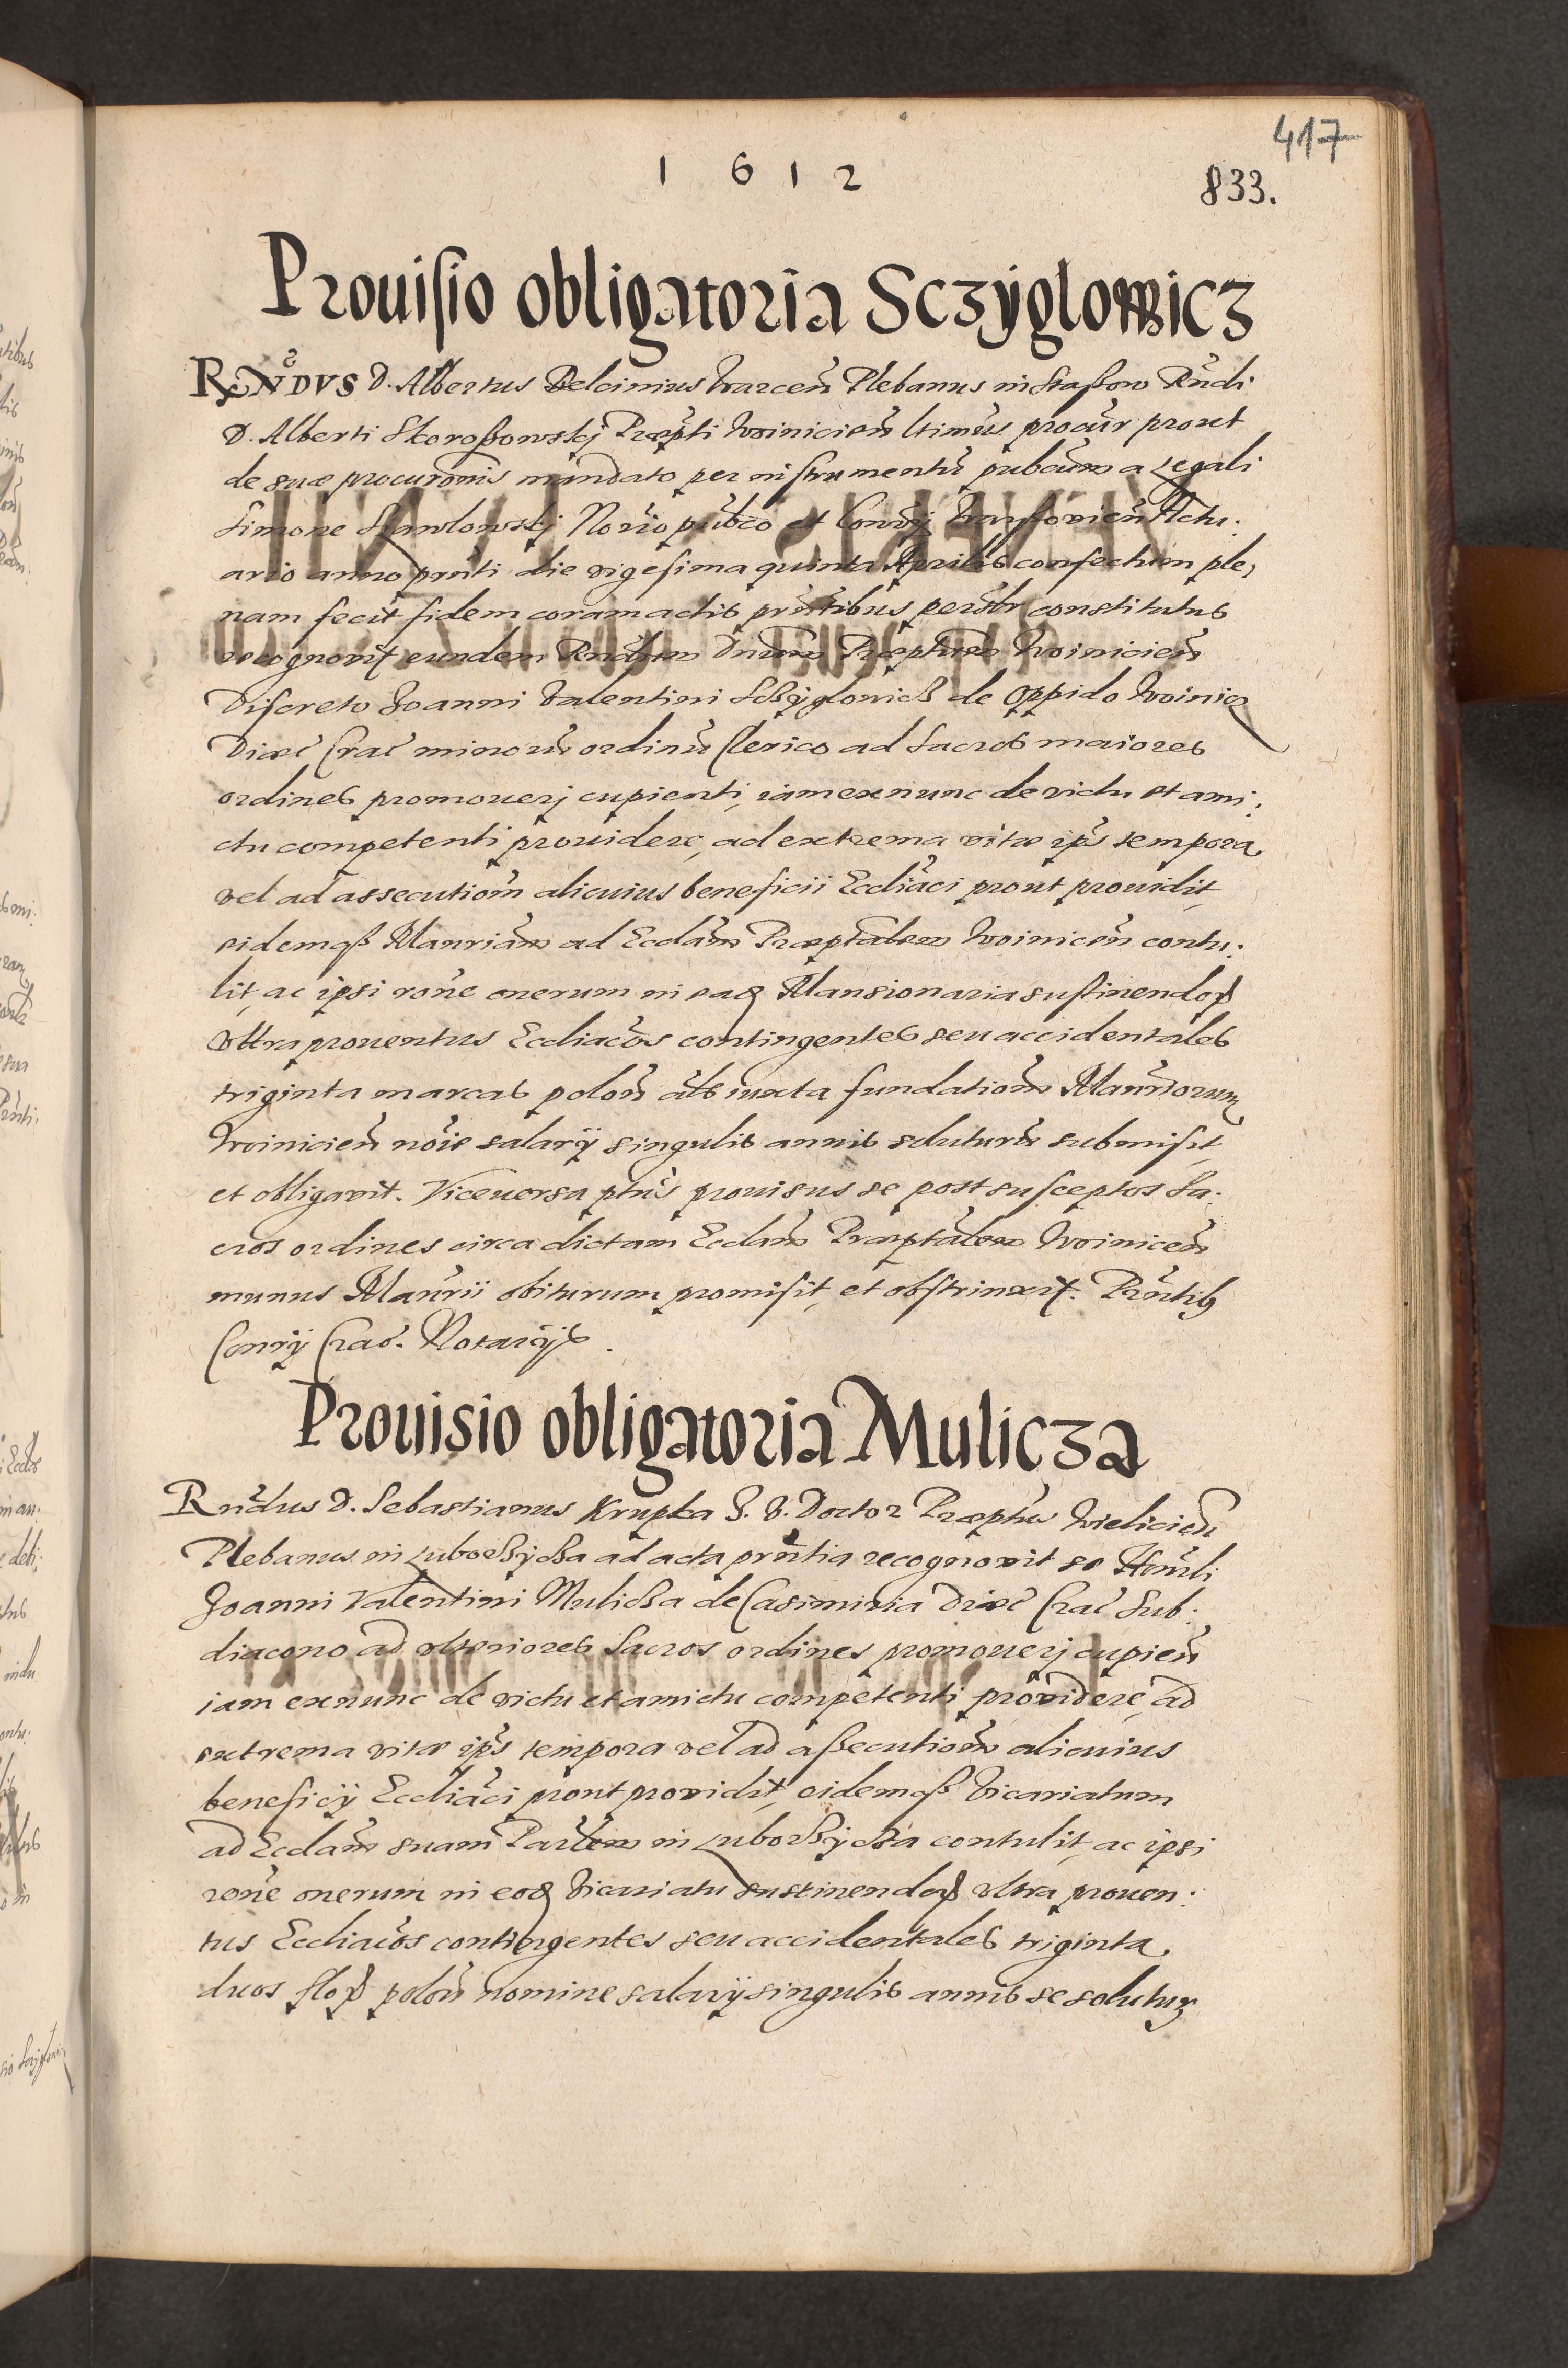 417
1 6 1 2
833.
Prouisio obligatoria Sczyglowicz
RͤNDVS D. Albertus Pelcinius Warceñ Plebanus in Staszow Rñdi
D. Alberti Skoroszowskj Præpti Woinicieñ ltimus procur prout
de suæ procuroñis mandato per instrumentũ pubcum a Legali
Simone Stawlowskj Norio pubco et Conrÿ Actu:
ario anno prñti die vigesima quinta Aprilis confectum ple,
nam fecit fidem coram actis prñtibus persolr constitutus
recognovit eundem Rndum Dnum Præptum Woinicieñ
Discreto Joanni Valentini Sczÿglovicz de Oppido Woinicz
Diæc Crac minorũ ordinũ Clerico ad Sacros maiores
ordines promouerj cupienti, iam ex nunc de victu et ami:
ctu competenti prouidere, ad extrema vitæ ips tempora,
vel ad assecutiom alicuius beneficii Eccliaci prout prouidit,
eidemqz Manriam ad Ecclam Præptalem Woinicen contu:
lit, ac ipsi rone onerum in eaq Mansionaria sustinendoꝝ
vltra prouentus Eccliacos contingentes seu accidentales
triginta marcas poloñ als iuxta fundationem Manriorum
Woinicieñ noie salarÿ singulis annis soluturũ submisit,
et obligavit. Viceuersa ptus prouisus se post susceptos Sa:
cros ordines circa dictam Ecclam Præptalem Woiniceñ
munus Manrii obiturum promisit, et obstrinxit. Prñtib
Conrÿ Crac. Notarÿs.
Prouisio obligatoria Mulicza
Rndus D. Sebastianus Krupka J. V. Doctor Præptus Wielicieñ
Plebanus in Luborzÿcza ad acta prñtia recognovit se Honrli
Joanni Valentini Mulicza de Casimiria Diæc Crac Sub:
diacono ad vlteriores Sacros ordines promouerj cupieñ
iam ex nunc de victu et amictu competenti providere, ad
extrema vitæ ips tempora vel ad assecutiom alicuius
beneficÿ Eccliaci prout providit, eidemqz Vicariatum
ad Ecclam suam Parlem in Luborzÿcza contulit, ac ipsi
rone onerum in eoq Vicariatu sustinendoꝝ vltra prouen:
tus Eccliacos contingentes seu accidentales triginta
duos floꝝ poloñ nomine salarÿ singulis annis se solutuꝝ